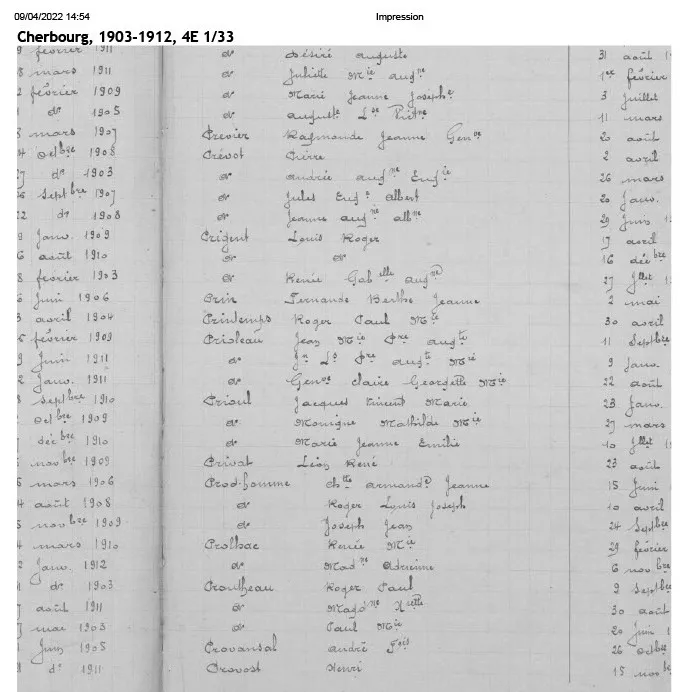 09/04/2022 14:54 Impression
Cherbourg, 1903-1912, 4E 1/33
9 février 1911 do Désiré auguste 31 août
8 mars 1911 do Juliette Mie augne 1er février
2 février 1909 do Marie Jeanne Josephe 3 juillet
do 1905 do auguste 11 mars
mars 1907 Previer Raymonde Jeanne Genve 20 août
octbre 1908 Prévot Pierre 2 avril
27 do 1903 do andrée augne Engie 26 mars
septbre 1907 do Jules Enge albert 20 Janv.
22 do 1908 do Jeanne augne albne 29 Juin
9 Janv. 1909 Prigent Louis Roger 17 avril
6 août 1910 do do 16 décbre
8 février 1903 do Renée Gablle augne 27 Jllet
Juin 1906 Prin Fernande Berthe Jeanne 2 mai
3 avril 1904 Printemps Roger Paul Mie 30 avril
février 1909 Prioleau Jean Mie Pre augte 11 septbre
9 Juin 1911 do Jn Ls Pre augte Mie 9 Janv.
2 Janv. 1911 do Genve Claire Georgette Mie 22 août
septbre 1910 Prioul Jacques Vincent Marie 23 Janv.
octbre 1909 do Monique Mathilde Mie 27 mars
décbre 1910 do Marie Jeanne Emilie 10 Jllet
novbre 1909 Privat Léon René 23 août
mars 1906 Prod'homme chtte armande Jeanne 15 Juin
août 1908 do Roger Louis Joseph 10 avril
novbre 1909 do Joseph Jean 24 septbre
mars 1910 Prolhac Renée Mie 29 février
2 Janv. 1912 do Madne Adrienne 6 novbre
do 1903 Prontheau Roger Paul 9 septbre
août 1911 do 30 août
mai 1903 do Paul Mie 20 Juin
Juin 1905 Provansal andré Fois 26 octbre
do 1911 Provost Henri 15 novbre